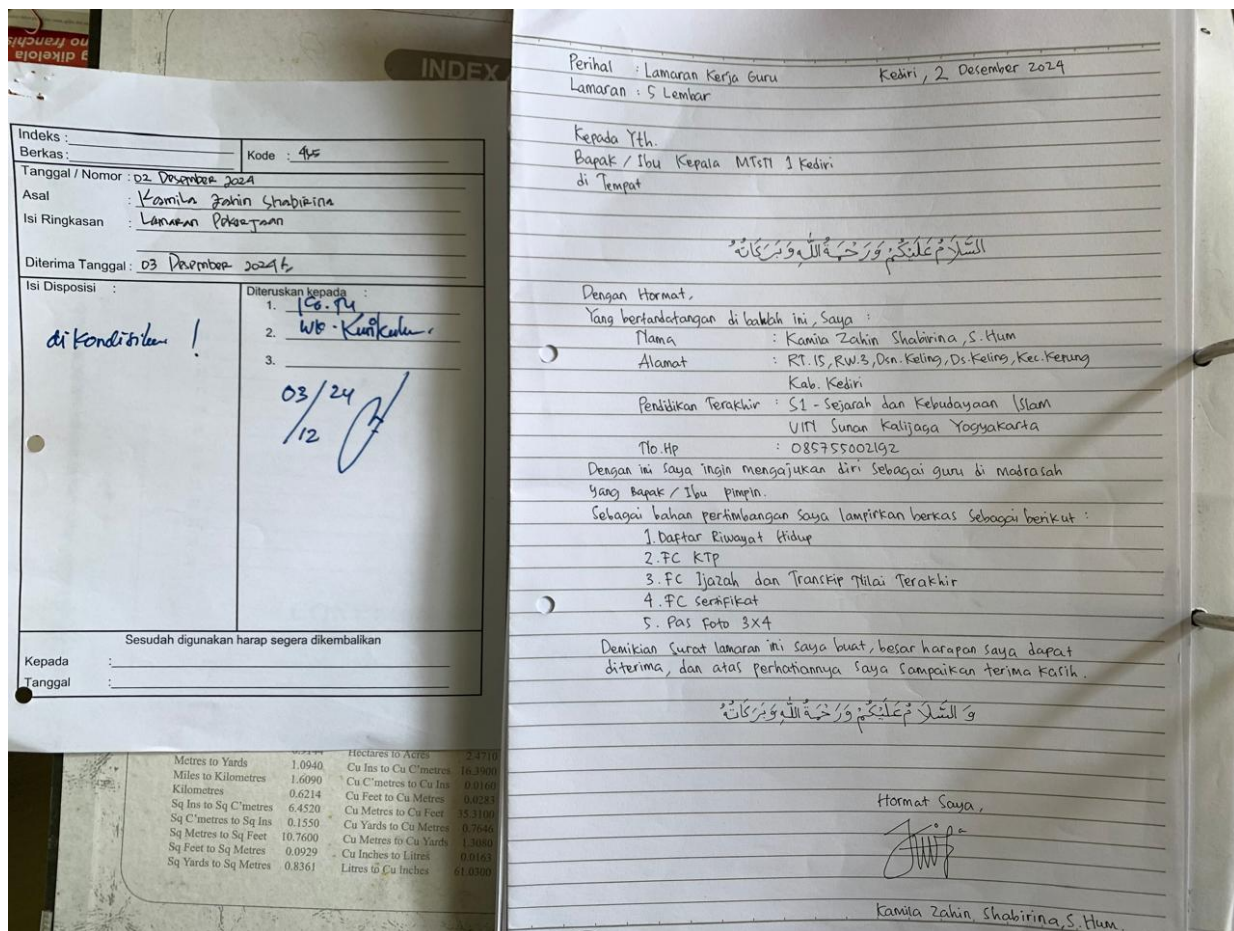 INDEX
Indeks :
Berkas :
Kode :
Tanggal / Nomor : 02 Desember 2024
Asal : Kamila Zahin Shabirina
Isi Ringkasan : Lamaran Pekerjaan
Diterima Tanggal : 03 Desember 2024
Isi Disposisi :
di kondisikan !
Diteruskan kepada :
1.
2. Kurikulum
3.
03/24
/12
Sesudah digunakan harap segera dikembalikan
Kepada :
Tanggal :
Hectares to Acres 2.4710
Metres to Yards 1.0940 Cu Ins to Cu C'metres 16.3900
Miles to Kilometres 1.6090 Cu C'metres to Cu Ins 0.0160
Kilometres 0.6214 Cu Feet to Cu Metres 0.0283
Sq Ins to Sq C'metres 6.4520 Cu Metres to Cu Feet 35.3100
Sq C'metres to Sq Ins 0.1550 Cu Yards to Cu Metres 0.7646
Sq Metres to Sq Feet 10.7600 Cu Metres to Cu Yards 1.3080
Sq Feet to Sq Metres 0.0929 Cu Inches to Litres 0.0163
Sq Yards to Sq Metres 0.8361 Litres to Cu Inches 61.0300
Perihal : Lamaran Kerja Guru Kediri, 2 Desember 2024
Lamaran : 5 Lembar
Kepada Yth.
Bapak / Ibu Kepala MTsN 1 Kediri
di Tempat
السَّلَامُ عَلَيْكُمْ وَرَحْمَةُ اللَّهِ وَبَرَكَاتُهُ
Dengan Hormat,
Yang bertandatangan di bawah ini, Saya :
Nama : Kamila Zahin Shabirina, S.Hum
Alamat : RT.15, RW.3, Dsn.Keling, Ds.Keling, Kec.Kepung
Kab. Kediri
Pendidikan Terakhir : S1 - Sejarah dan Kebudayaan Islam
UIN Sunan Kalijaga Yogyakarta
No.Hp : 085755002192
Dengan ini saya ingin mengajukan diri sebagai guru di madrasah
yang Bapak / Ibu pimpin.
Sebagai bahan pertimbangan saya lampirkan berkas sebagai berikut :
1. Daftar Riwayat Hidup
2. FC KTP
3. FC Ijazah dan Transkip Nilai Terakhir
4. FC Sertifikat
5. Pas Foto 3X4
Demikian surat lamaran ini saya buat, besar harapan saya dapat
diterima, dan atas perhatiannya saya sampaikan terima kasih.
وَ السَّلَامُ عَلَيْكُمْ وَرَحْمَةُ اللَّهِ وَبَرَكَاتُهُ
Hormat Saya,
Kamila Zahin Shabirina, S.Hum